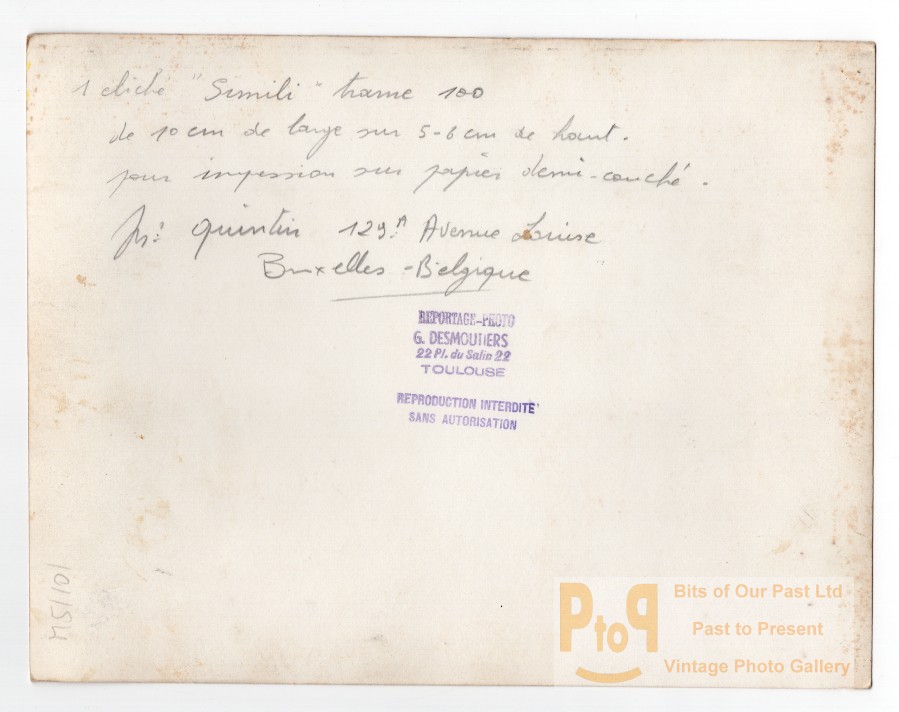 1 cliché "Simili" trame 100
de 10 cm de large sur 5-6 cm de haut.
pour impression sur papier demi-couché.
Quintin 129 A Avenue Louise
Bruxelles - Belgique
REPORTAGE-PHOTO
G. DESMOUNIERS
22 Pl. du Salin 22
TOULOUSE
REPRODUCTION INTERDITE
SANS AUTORISATION
PtoP
Bits of Our Past Ltd
Past to Present
Vintage Photo Gallery